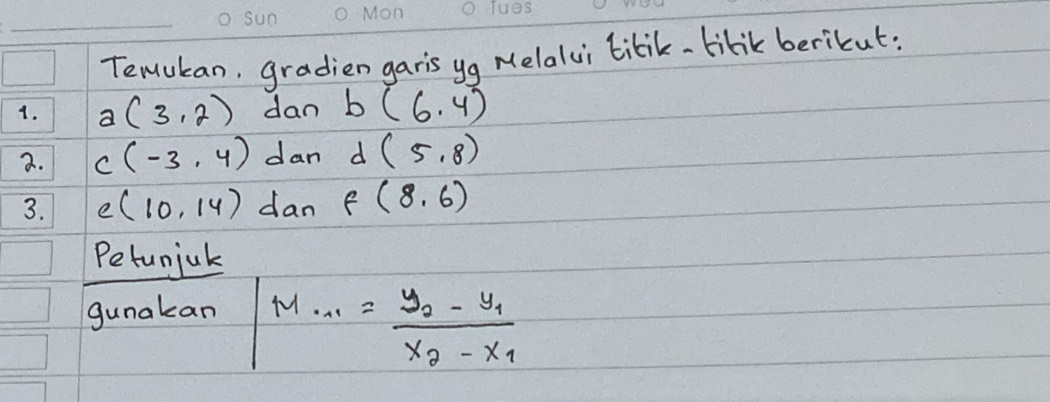 Sun Mon Tues Wed
Temukan, gradien garis yg Melalui titik-titik berikut:
1. a(3,2) dan b(6.4)
2. c(-3,4) dan d(5,8)
3. e(10,14) dan f(8,6)
Petunjuk
gunakan M... = y₂ - y₁
x₂ - x₁